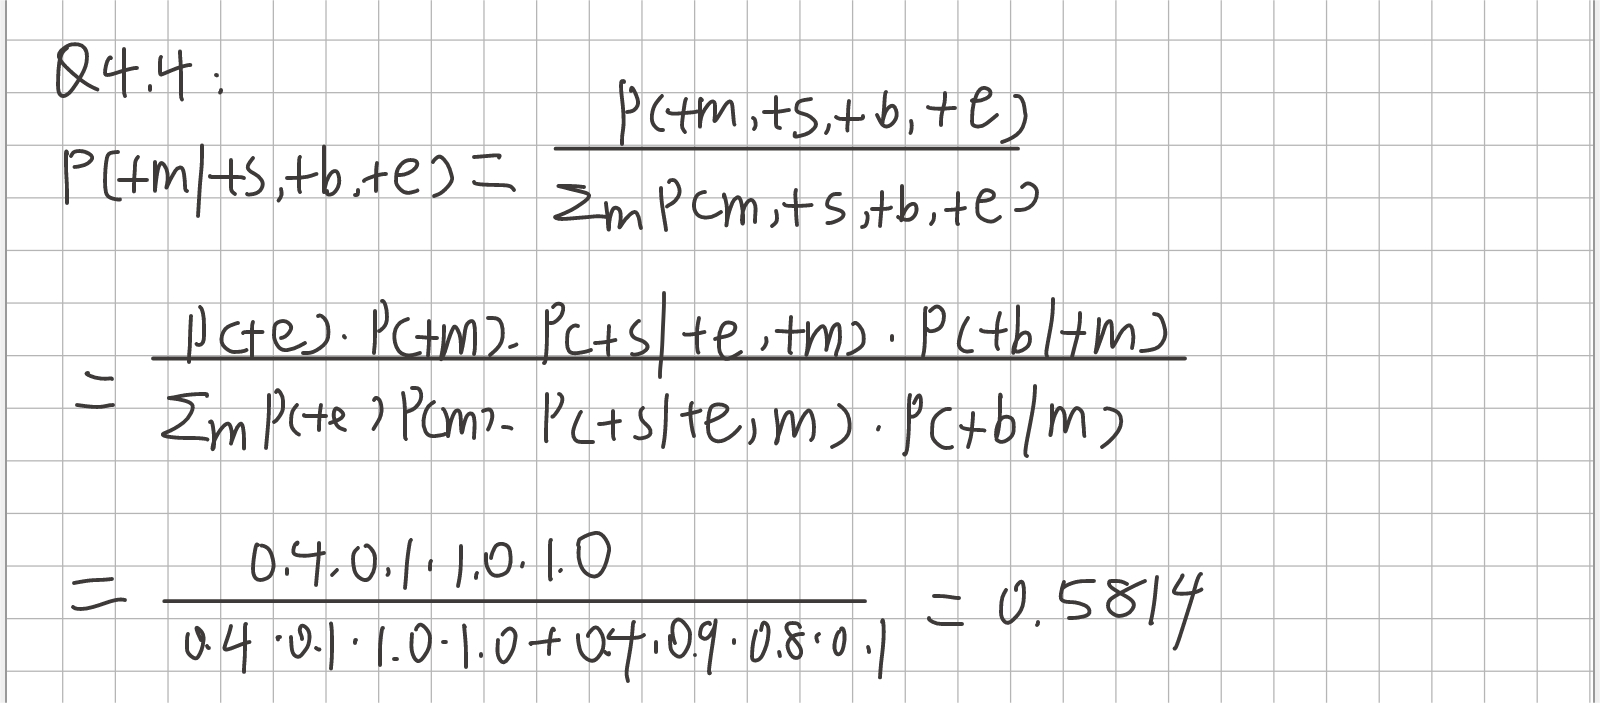 Q4.4:
P(+m|+s,+b,+e) = \frac{P(+m,+s,+b,+e)}{\sum_m P(m,+s,+b,+e)}
= \frac{P(+e)·P(+m)·P(+s|+e,+m)·P(+b|+m)}{\sum_m P(+e)P(m)·P(+s|+e,m)·P(+b|m)}
= \frac{0.4·0.1·1.0·1.0}{0.4·0.1·1.0·1.0+0.4·0.9·0.8·0.1} = 0.5814